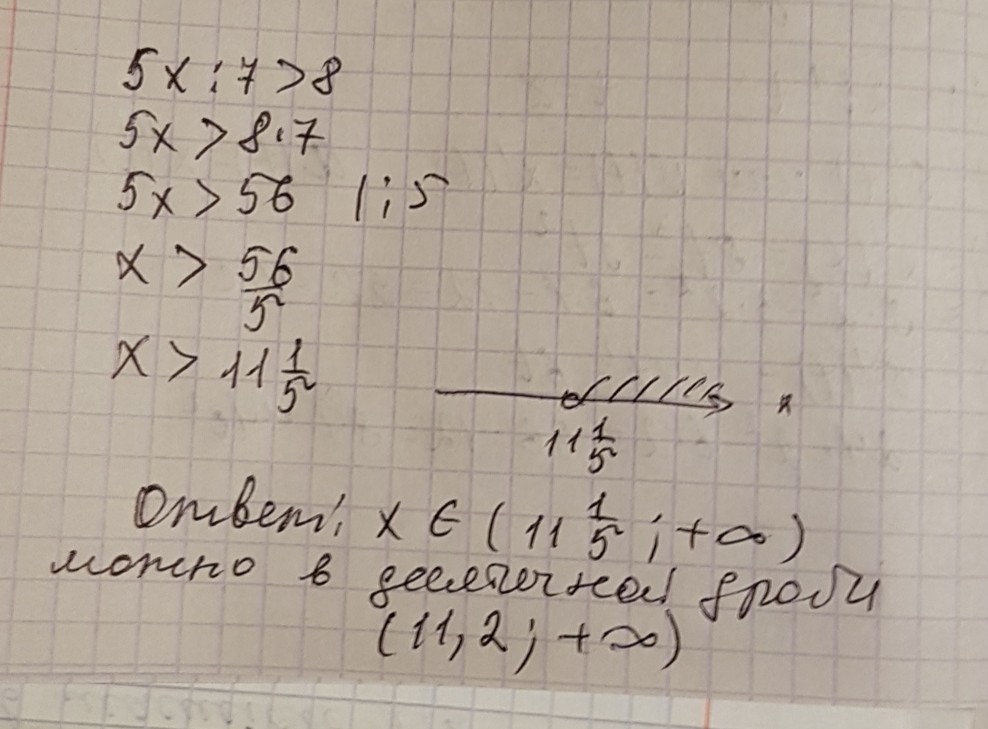 5x : 7 > 8
5x > 8·7
5x > 56 | : 5
x > 56/5
x > 11 1/5
x
11 1/5
Ответ: x ∈ (11 1/5 ; +∞)
можно в десятичной дроби
(11,2 ; +∞)